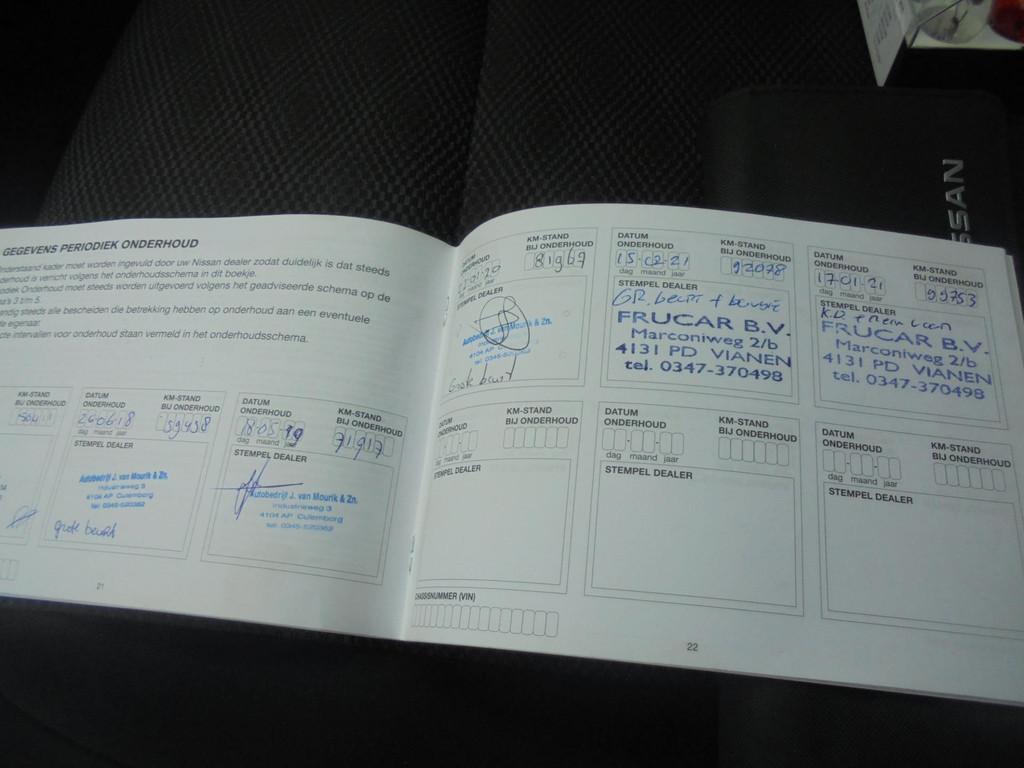 GEGEVENS PERIODIEK ONDERHOUD
kader moet worden ingevuld door uw Nissan dealer zodat duidelijk is dat steeds
is verricht volgens het onderhoudsschema in dit boekje.
Onderhoud moet steeds worden uitgevoerd volgens het geadviseerde schema op de
3 t/m 5.
steeds alle bescheiden die betrekking hebben op onderhoud aan een eventuele
eigenaar.
intervallen voor onderhoud staan vermeld in het onderhoudsschema.
KM-STAND
BIJ ONDERHOUD
DATUM
ONDERHOUD
KM-STAND
BIJ ONDERHOUD
26 06 18
59458
dag maand jaar
STEMPEL DEALER
Autobedrijf J. van Mourik & Zn.
Industrieweg 3
4104 AP Culemborg
tel: 0345-520362
grote beurt
DATUM
ONDERHOUD
KM-STAND
BIJ ONDERHOUD
18-05-19
71917
dag maand jaar
STEMPEL DEALER
Autobedrijf J. van Mourik & Zn.
Industrieweg 3
4104 AP Culemborg
tel: 0345-520362
21
DATUM
ONDERHOUD
KM-STAND
BIJ ONDERHOUD
81967
STEMPEL DEALER
Autobedrijf J. van Mourik & Zn.
4104 AP
tel: 0345-
Grote beurt
DATUM
ONDERHOUD
KM-STAND
BIJ ONDERHOUD
15-02-21
92078
dag maand jaar
STEMPEL DEALER
GR. beurt +
FRUCAR B.V.
Marconiweg 2/b
4131 PD VIANEN
tel. 0347-370498
DATUM
ONDERHOUD
KM-STAND
BIJ ONDERHOUD
17-01-21
99753
dag maand jaar
STEMPEL DEALER
FRUCAR B.V.
Marconiweg 2/b
4131 PD VIANEN
tel. 0347-370498
KM-STAND
BIJ ONDERHOUD
maand jaar
STEMPEL DEALER
DATUM
ONDERHOUD
KM-STAND
BIJ ONDERHOUD
dag maand jaar
STEMPEL DEALER
DATUM
ONDERHOUD
KM-STAND
BIJ ONDERHOUD
dag maand jaar
STEMPEL DEALER
CHASSISNUMMER (VIN)
22
SSAN